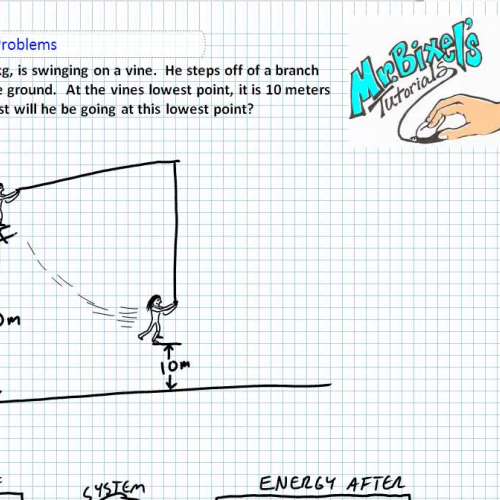 roblems
kg, is swinging on a vine. He steps off of a branch
e ground. At the vines lowest point, it is 10 meters
st will he be going at this lowest point?
Mr. Bixel's
Tutorials
0m
10m
SYSTEM
ENERGY AFTER